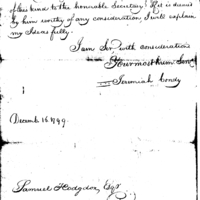 of this kind to the honourable Secretary. If it is deemd
by him worthy of any consideration, I will explain
my Ideas fully.
I am Sir with consideration
Your most hum Servt
Jeremiah Condy
Decemb 16 1799.
Samuel Hodgdon, Esqr